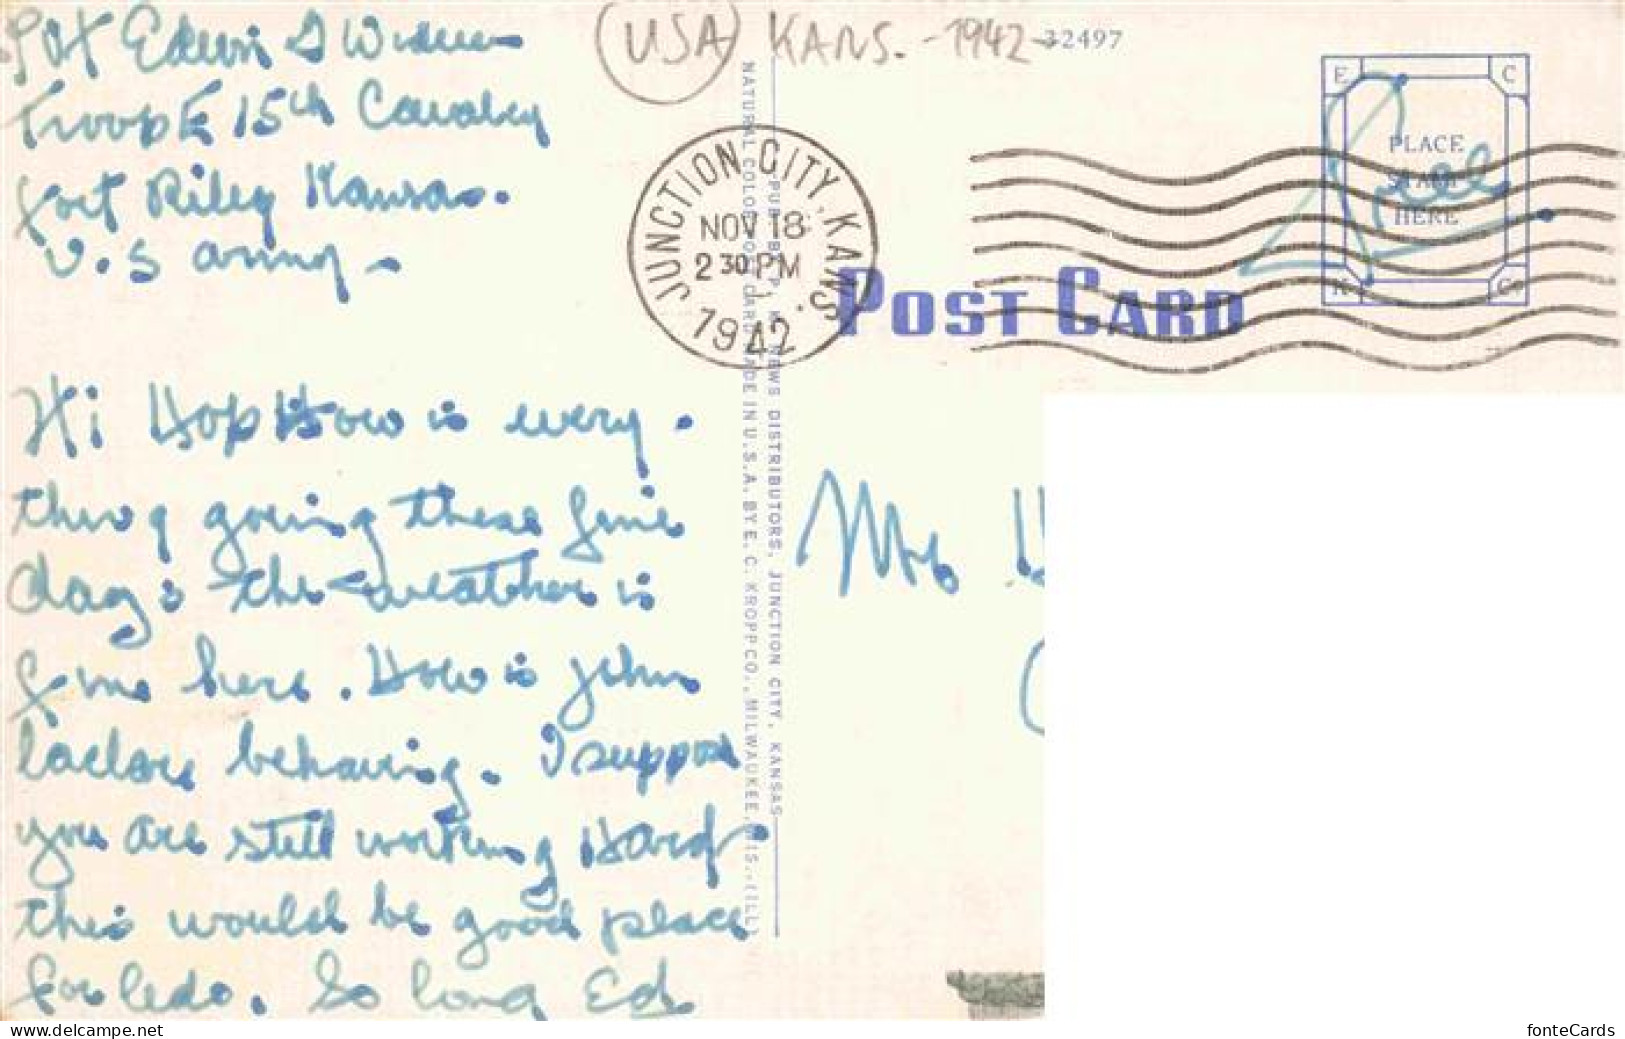 Pvt Edwin S
Troop E 15th Cavalry
Fort Riley Kansas.
U.S army -
Hi Hop How is every.
thing going these fine
days the weather is
fine here. How is john
behaving. I suppose
you are still working Hard
this would be good place
for ledo. So long Ed
USA KANS. - 1942 -
32497
JUNCTION CITY, KANS.
NOV 18
2 30 PM
1942
E C
K Co
PLACE
STAMP
HERE
Free
POST CARD
Mr
PUB. BY J. P. NEWS DISTRIBUTORS, JUNCTION CITY, KANSAS
NATURAL COLOR POST CARD MADE IN U.S.A. BY E. C. KROPP CO., MILWAUKEE, WIS.
fonteCards